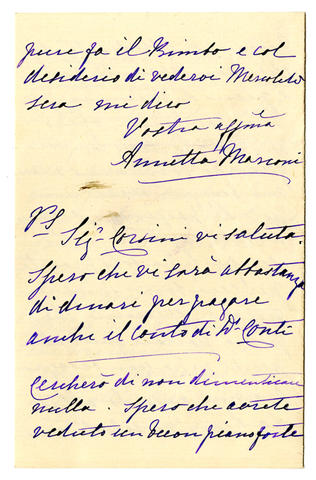 pure fa il Bimbo e col
desiderio di vedervi Mercoledì
sera mi dico
Vostra affma
Annetta Marconi
PS Sigr Corsini vi saluta.
Spero che vi sarà abbastanza
di dinari per pagare
anche il Conto di Dr Conti
Cercherò di non dimenticare
nulla. Spero che avrete
veduto un buon pianoforte